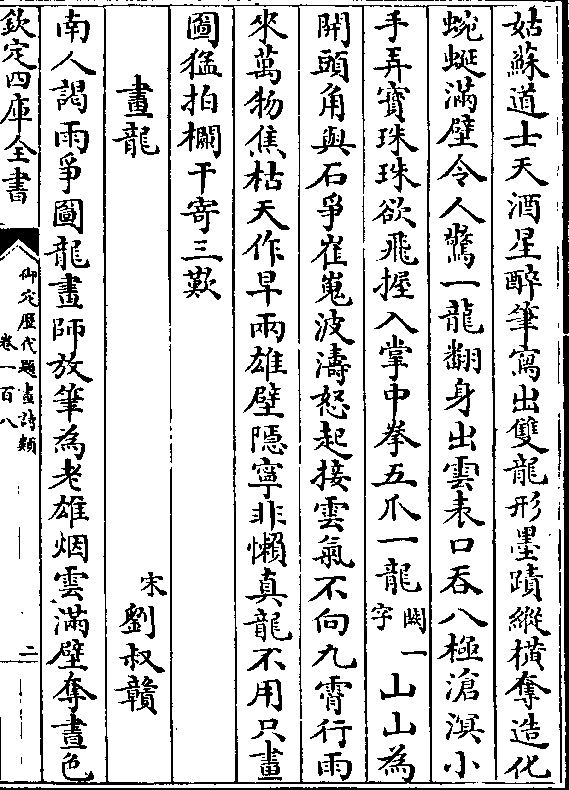 姑蘇道士天酒星醉筆寫出雙龍形墨蹟縱橫奪造化
蜿蜒滿壁令人驚一龍翻身出雲表口吞八極滄溟小
手弄寶珠珠欲飛握入掌中拳五爪一龍闕一字山山為
開頭角與石爭崔嵬波濤怒起接雲氣不向九霄行雨
來萬物焦枯天作旱兩雄壁隱寧非懶真龍不用只畫
圖猛拍欄干寄三歎
畫龍
宋劉叔贛
南人謁雨爭圖龍畫師放筆為老雄烟雲滿壁奪晝色
欽定四庫全書
御定歷代題畫詩類
卷一百八
二